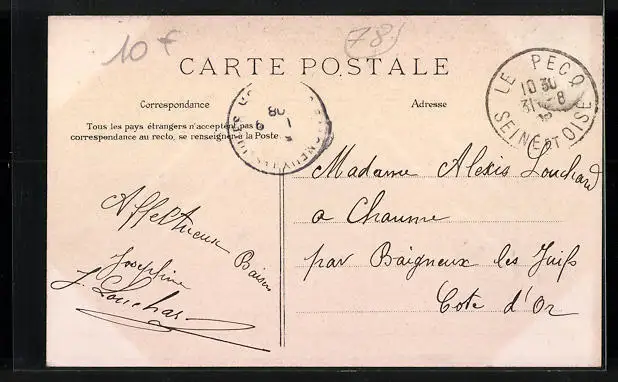 10 f
78
CARTE POSTALE
Correspondance
Adresse
Tous les pays étrangers n'acceptent pas
correspondance au recto, se renseigner à la Poste
LE PECQ
10 30
31 8
SEINE ET OISE
08
Madame Alexis Louchard
a Chaume
par Baigneux les Juifs
Cote d'Or
Affectueux Baisers
Joséphine
J. Louchard